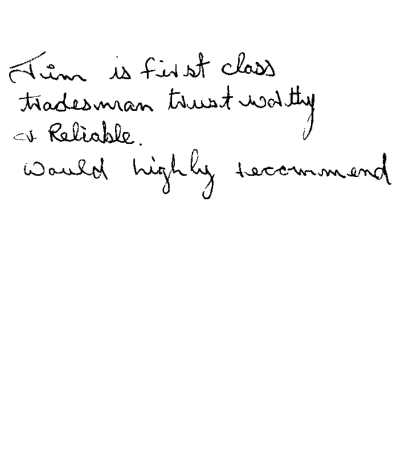 Jim is first class
tradesman trustworthy
& Reliable.
Would highly recommend